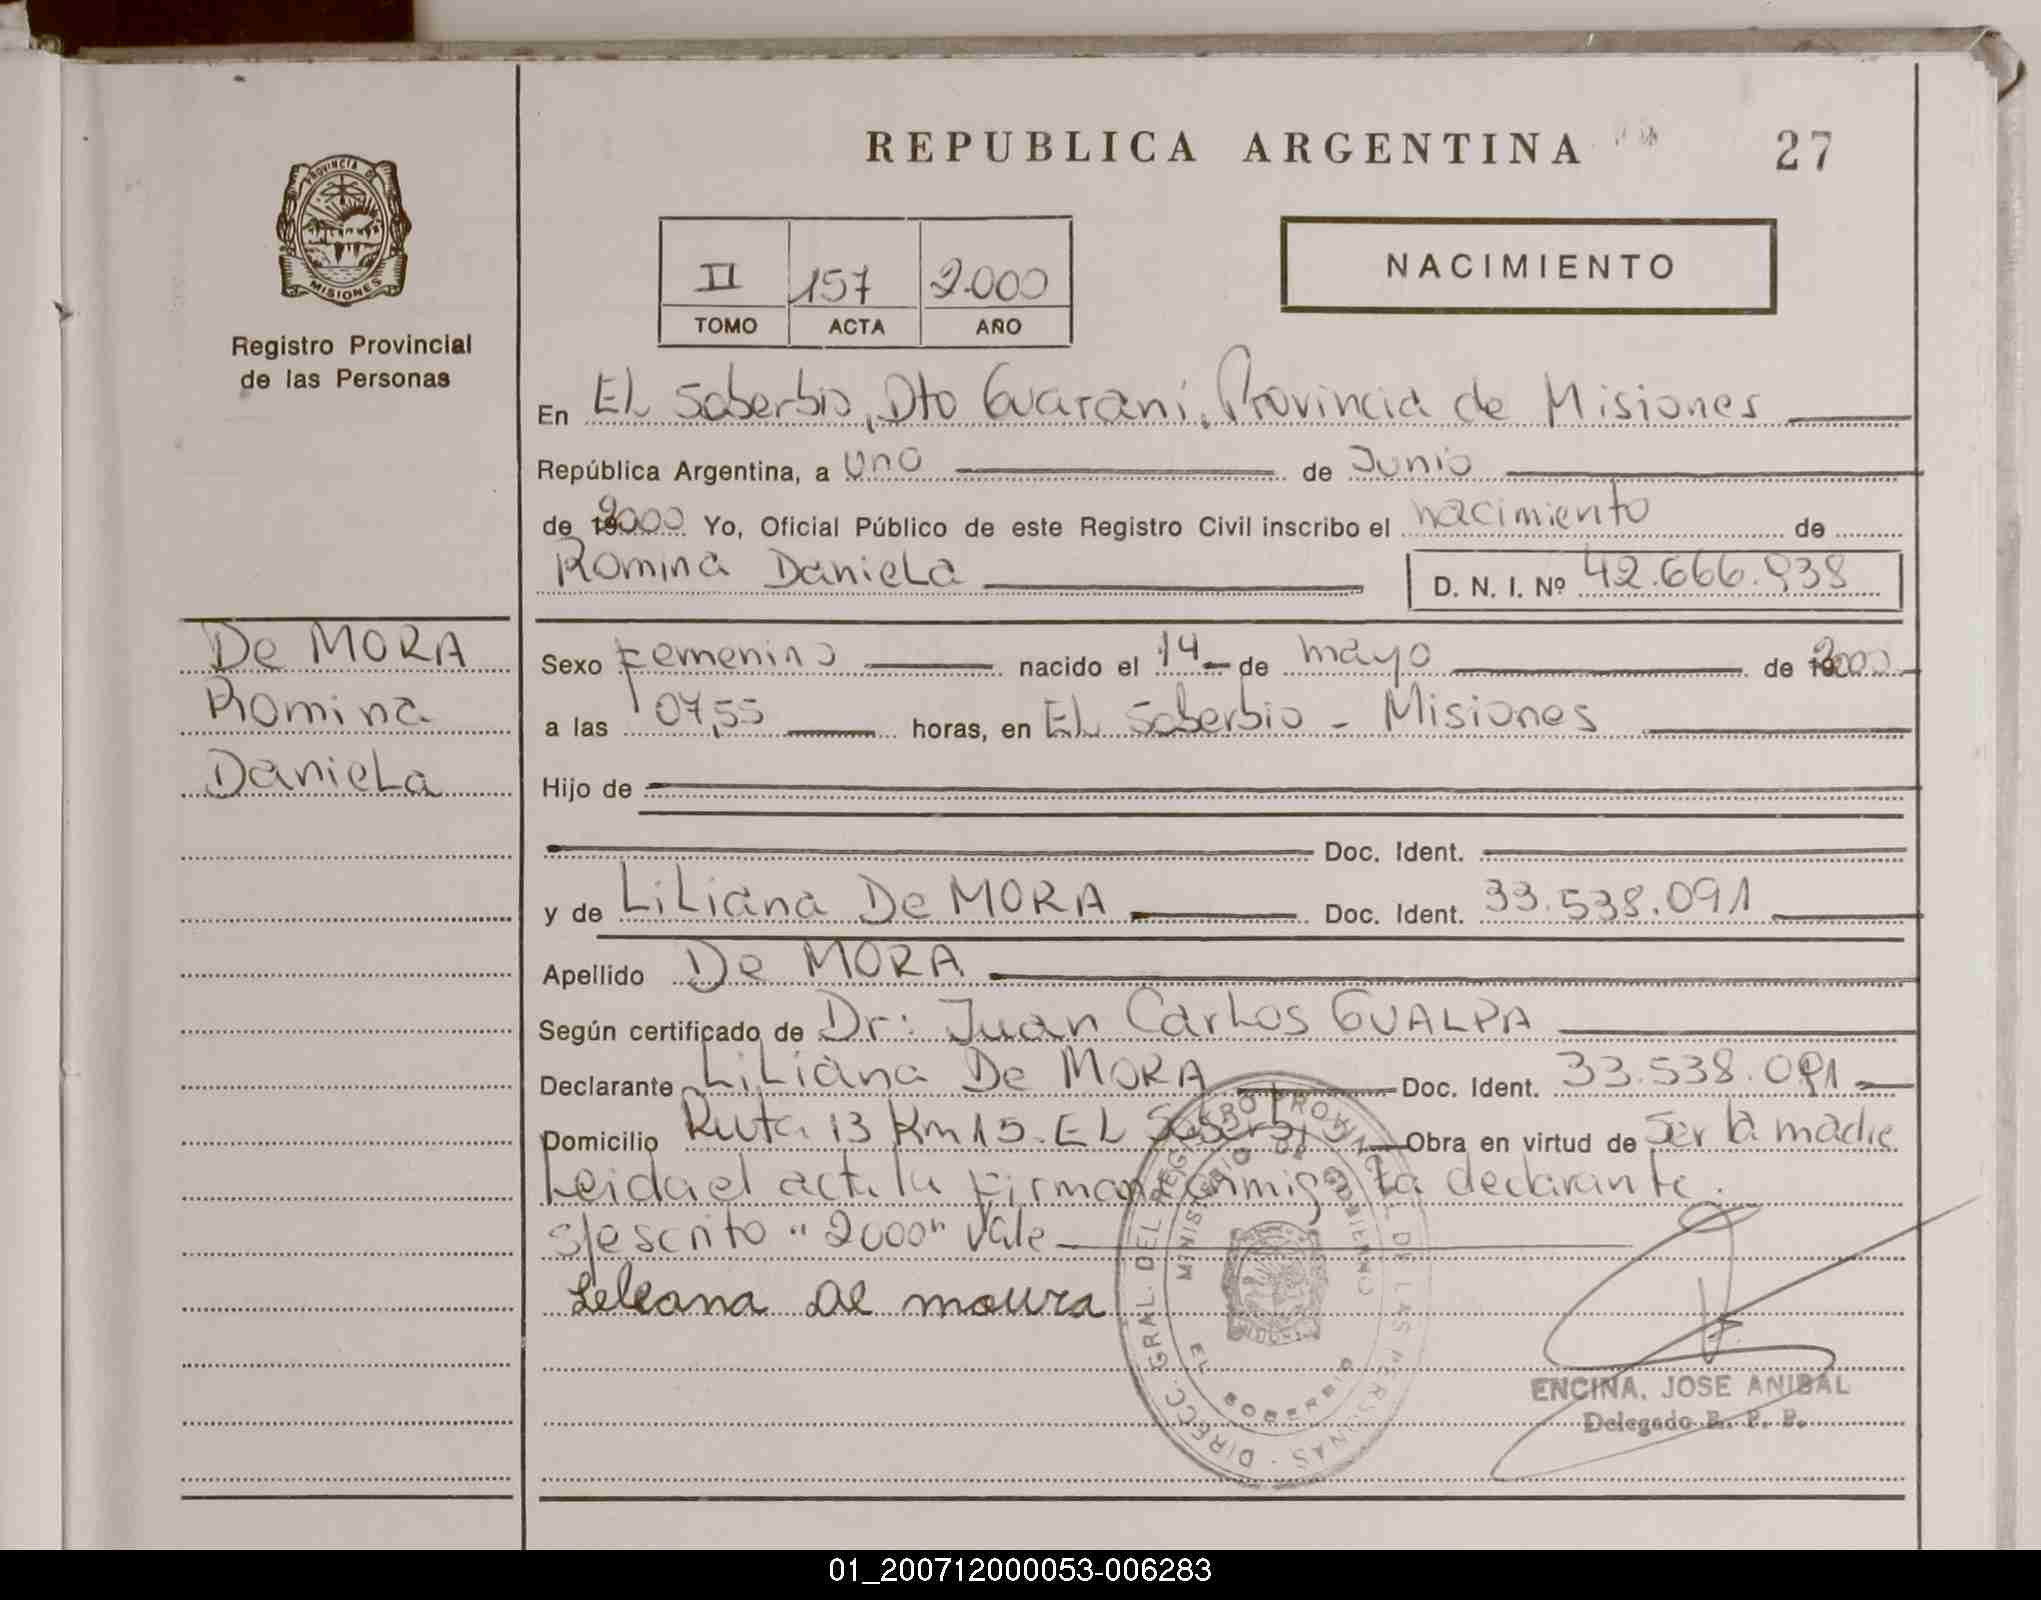 REPUBLICA ARGENTINA
27
PROVINCIA DE
MISIONES
Registro Provincial
de las Personas
NACIMIENTO
II 157 2.000
TOMO ACTA AÑO
En EL Soberbio, Dto Guaraní, Provincia de Misiones
República Argentina, a uno de Junio
de 2000 Yo, Oficial Público de este Registro Civil inscribo el nacimiento de
Romina Daniela
D. N. I. Nº 42.666.938
De MORA
Romina
Daniela
Sexo Femenino nacido el 14 de mayo de 2000
a las 07,55 horas, en EL Soberbio - Misiones
Hijo de
Doc. Ident.
y de Liliana De MORA Doc. Ident. 33.538.091
Apellido De MORA
Según certificado de Dr: Juan Carlos GUALPA
Declarante Liliana De MORA Doc. Ident. 33.538.091
Domicilio Ruta 13 Km 15. EL Soberbio Obra en virtud de ser la madre
Leida el acta la firman conmigo la declarante.
s/escrito "2000" vale
Leleana de moura
DIRECC. GRAL. DEL REGISTRO PROVINCIAL DE LAS PERSONAS
MINISTERIO DE GOBIERNO
EL SOBERBIO
ENCINA, JOSE ANIBAL
Delegado R. P. P.
01_200712000053-006283